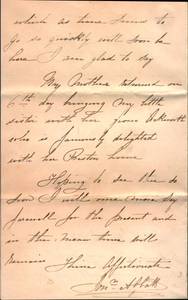 which as time seems to
go so quickly will soon be
here I am glad to say
My Mother returned on
6th day bringing my little
sister with her from
who is famously delighted
with her Boston home
Hoping to see thee so
soon I will now say
farewell for the present and
in the mean time will
remain
Thine Affectionate
Abbott